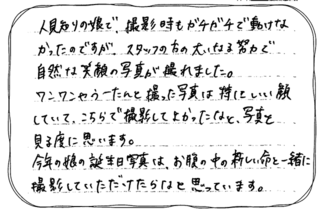 人見知りの娘で、撮影時もガチガチで動けな
かったのですが、スタッフの方の大いなる努力で
自然な笑顔の写真が撮れました。
ワンワンやうーたんと撮った写真は特にいい顔
していて、こちらで撮影してよかったなと、写真を
見る度に思います。
今年の娘の誕生日写真は、お腹の中の新しい命と一緒に
撮影していただけたらなと思っています。